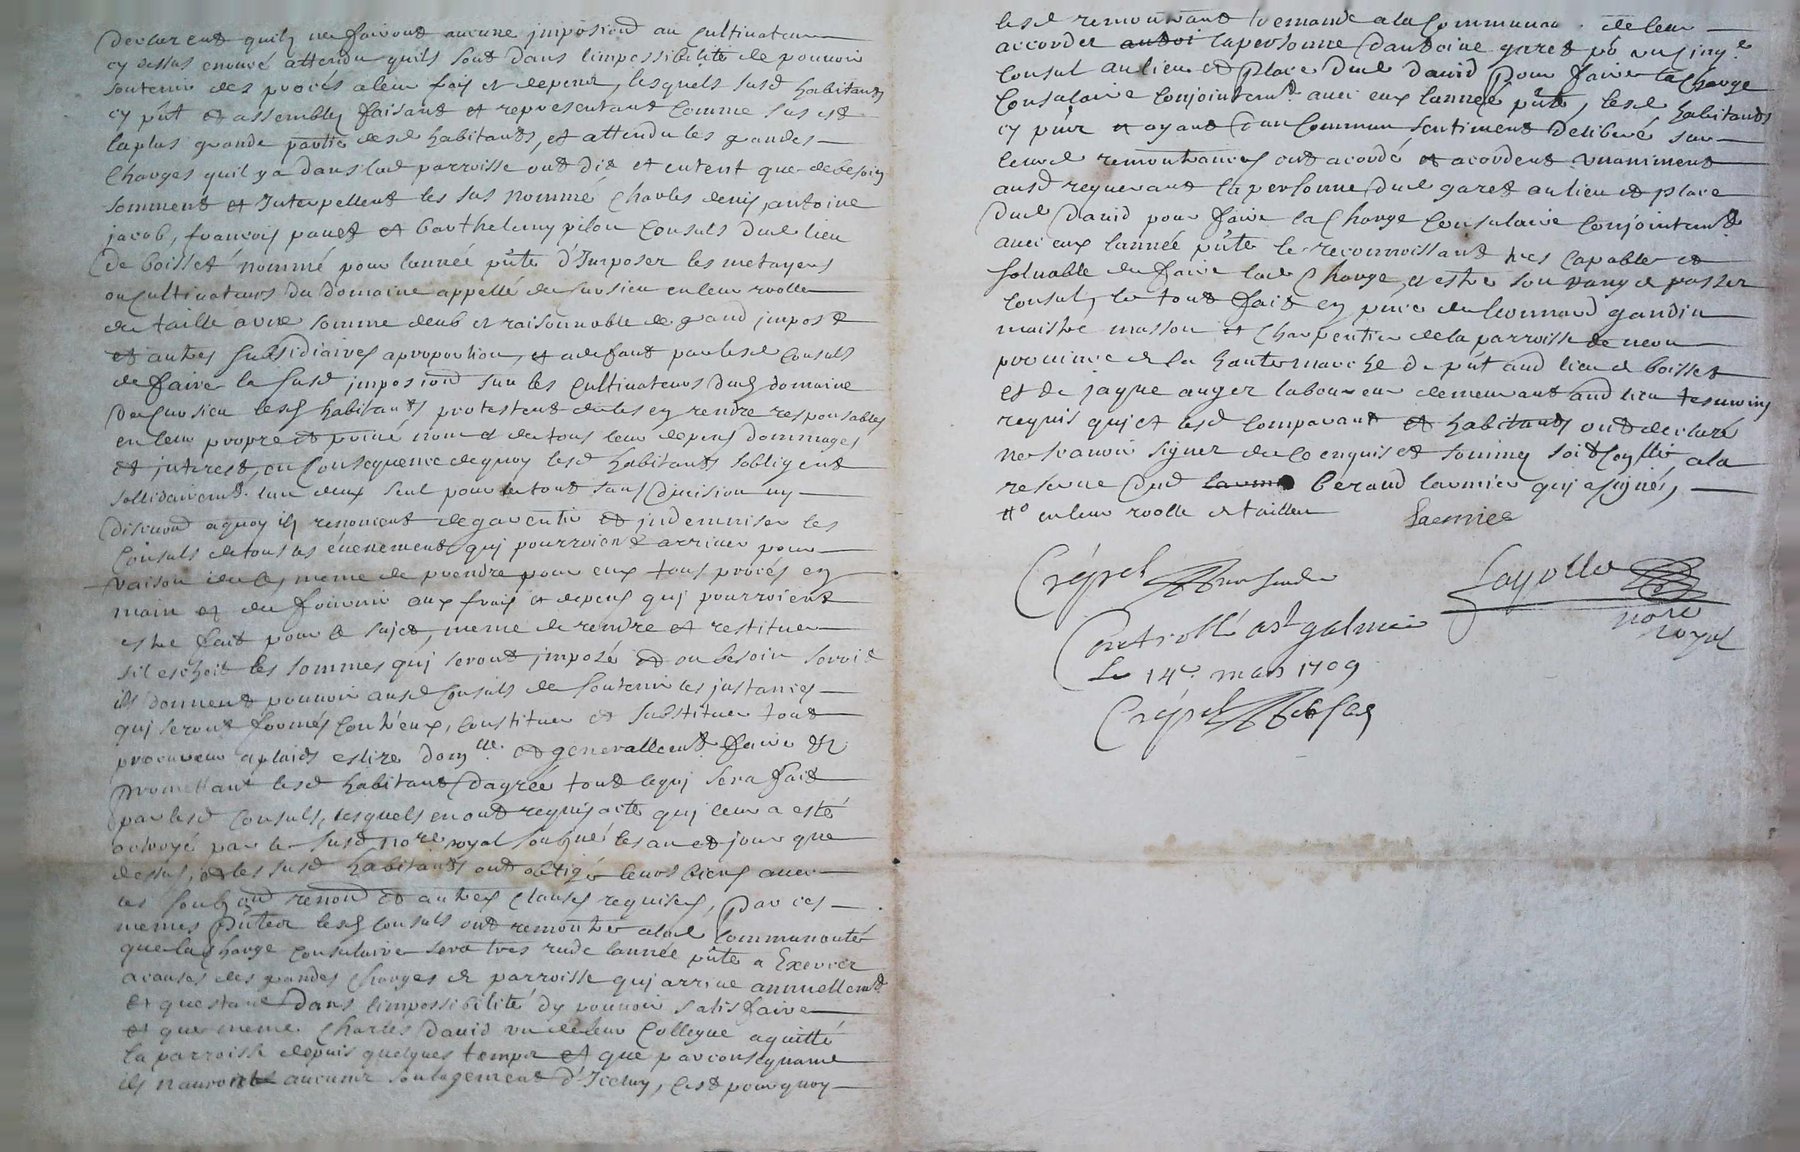 declarent quilz ne fairont aucune imposiond au cultivateur
cy dessus enoncé attendu quils sont dans limpossibilité de pouvoir
soutenir des procés a leur frais et depens, lesquels susd habitants
cy pñt et assemblés faisant et representant comme sus est
la plus grande partie desd habitants, et attendu les grandes
charges quil y a dans lad parroisse ont dit et entent que de besoin
somment et Interpellent les sus nommé Charles denis, antoine
jacob, francois panet et barthelemy pilon consuls dud lieu
de boisset nommé pour lannée pñte d'Imposer les metayers
ou cultivateurs du domaine appellé de en leur rolle
de taille a une somme deub et raisonnable de grand impost
et autres subsidiaires a proportion, et a defaut par lesd consuls
de faire la susd imposiond sur les cultivateurs dud domaine
de lesd habitants protestent de les en rendre responsables
en leur propre et privé nom et de tous leur depens dommages
et interest, en consequence de quoy lesd habitants sobligent
sollidairemt lun deux seul pour le tout sans division ny
discuond a quoy ils renoncent de garentir et indemniser les
consuls de tous les évenements qui pourroient arriver pour
raison de ce, meme de prendre pour eux tous procés en
main et de fournir aux frais et depens qui pourroient
estre fait pour le sujet, meme de rendre et restituer
sil eschoit les sommes qui seront imposé et ou besoin seroit
ils donnent pouvoir ausd consuls de soutenir les instances
qui seront formés contr'eux, constituer et substituer tout
procureur a plaids eslire domlle et generallemt faire &
promettant lesd habitants d'agréé tout ce qui sera fait
par lesd consuls, lesquels en ont requis acte qui leur a esté
octroyé par le susd nore royal soubsigné les an et jour que
dessus, et les susd habitants ont obligé leurs biens avec
les soubzond renond et autres clauses requises, par ces
memes pñtes lesd consuls ont remontrer a lad communauté
que la charge consulaire sera tres rude lannée pñte a Exercer
a causes des grandes charges de parroisse qui arrive annuellemt
et questant dans limpossibilité dy pouvoir satisfaire
et que meme Charles david un de leur collegue a quitté
la parroisse depuis quelques temps et que par consequand
ils nauront aucune soulagement d'Iceluy, cest pourquoy
lesd remontrants demande a la communau. de leur
accorder la personne d'antoine garet po un cinqe
consul au lieu et place dud david pour faire la charge
consulaire conjointemt avec eux lannée pñte, lesd habitants
cy pñts et ayant d'un commun sentiment deliberé sur
leurd remontrances ont acordé et acordent unaniment
ausd requerant la personne dud garet au lieu et place
dud david pour faire la charge consulaire conjointemt
avec eux lannée pñte le reconnoissant tres capable et
solvable de faire lad charge, et estre son rang de passer
consul, le tout fait en pnce de leonnard gandin
maistre masson et charpentier de la parroisse de
province de la haute marche de pñt aud lieu de boisset
et de jaque auger laboureur demeurant aud lieu tesmoins
requis qui et lesd comparant et habitants ont declaré
ne scavoir signer de ce enquis et sommes a la
reserve dud beraud larmier qui a signé,
en leur rolle de tailles larmier
Crépel
fayolle
nore
royal
Controllé a st galmier
Le 14e mars 1709
Crépel